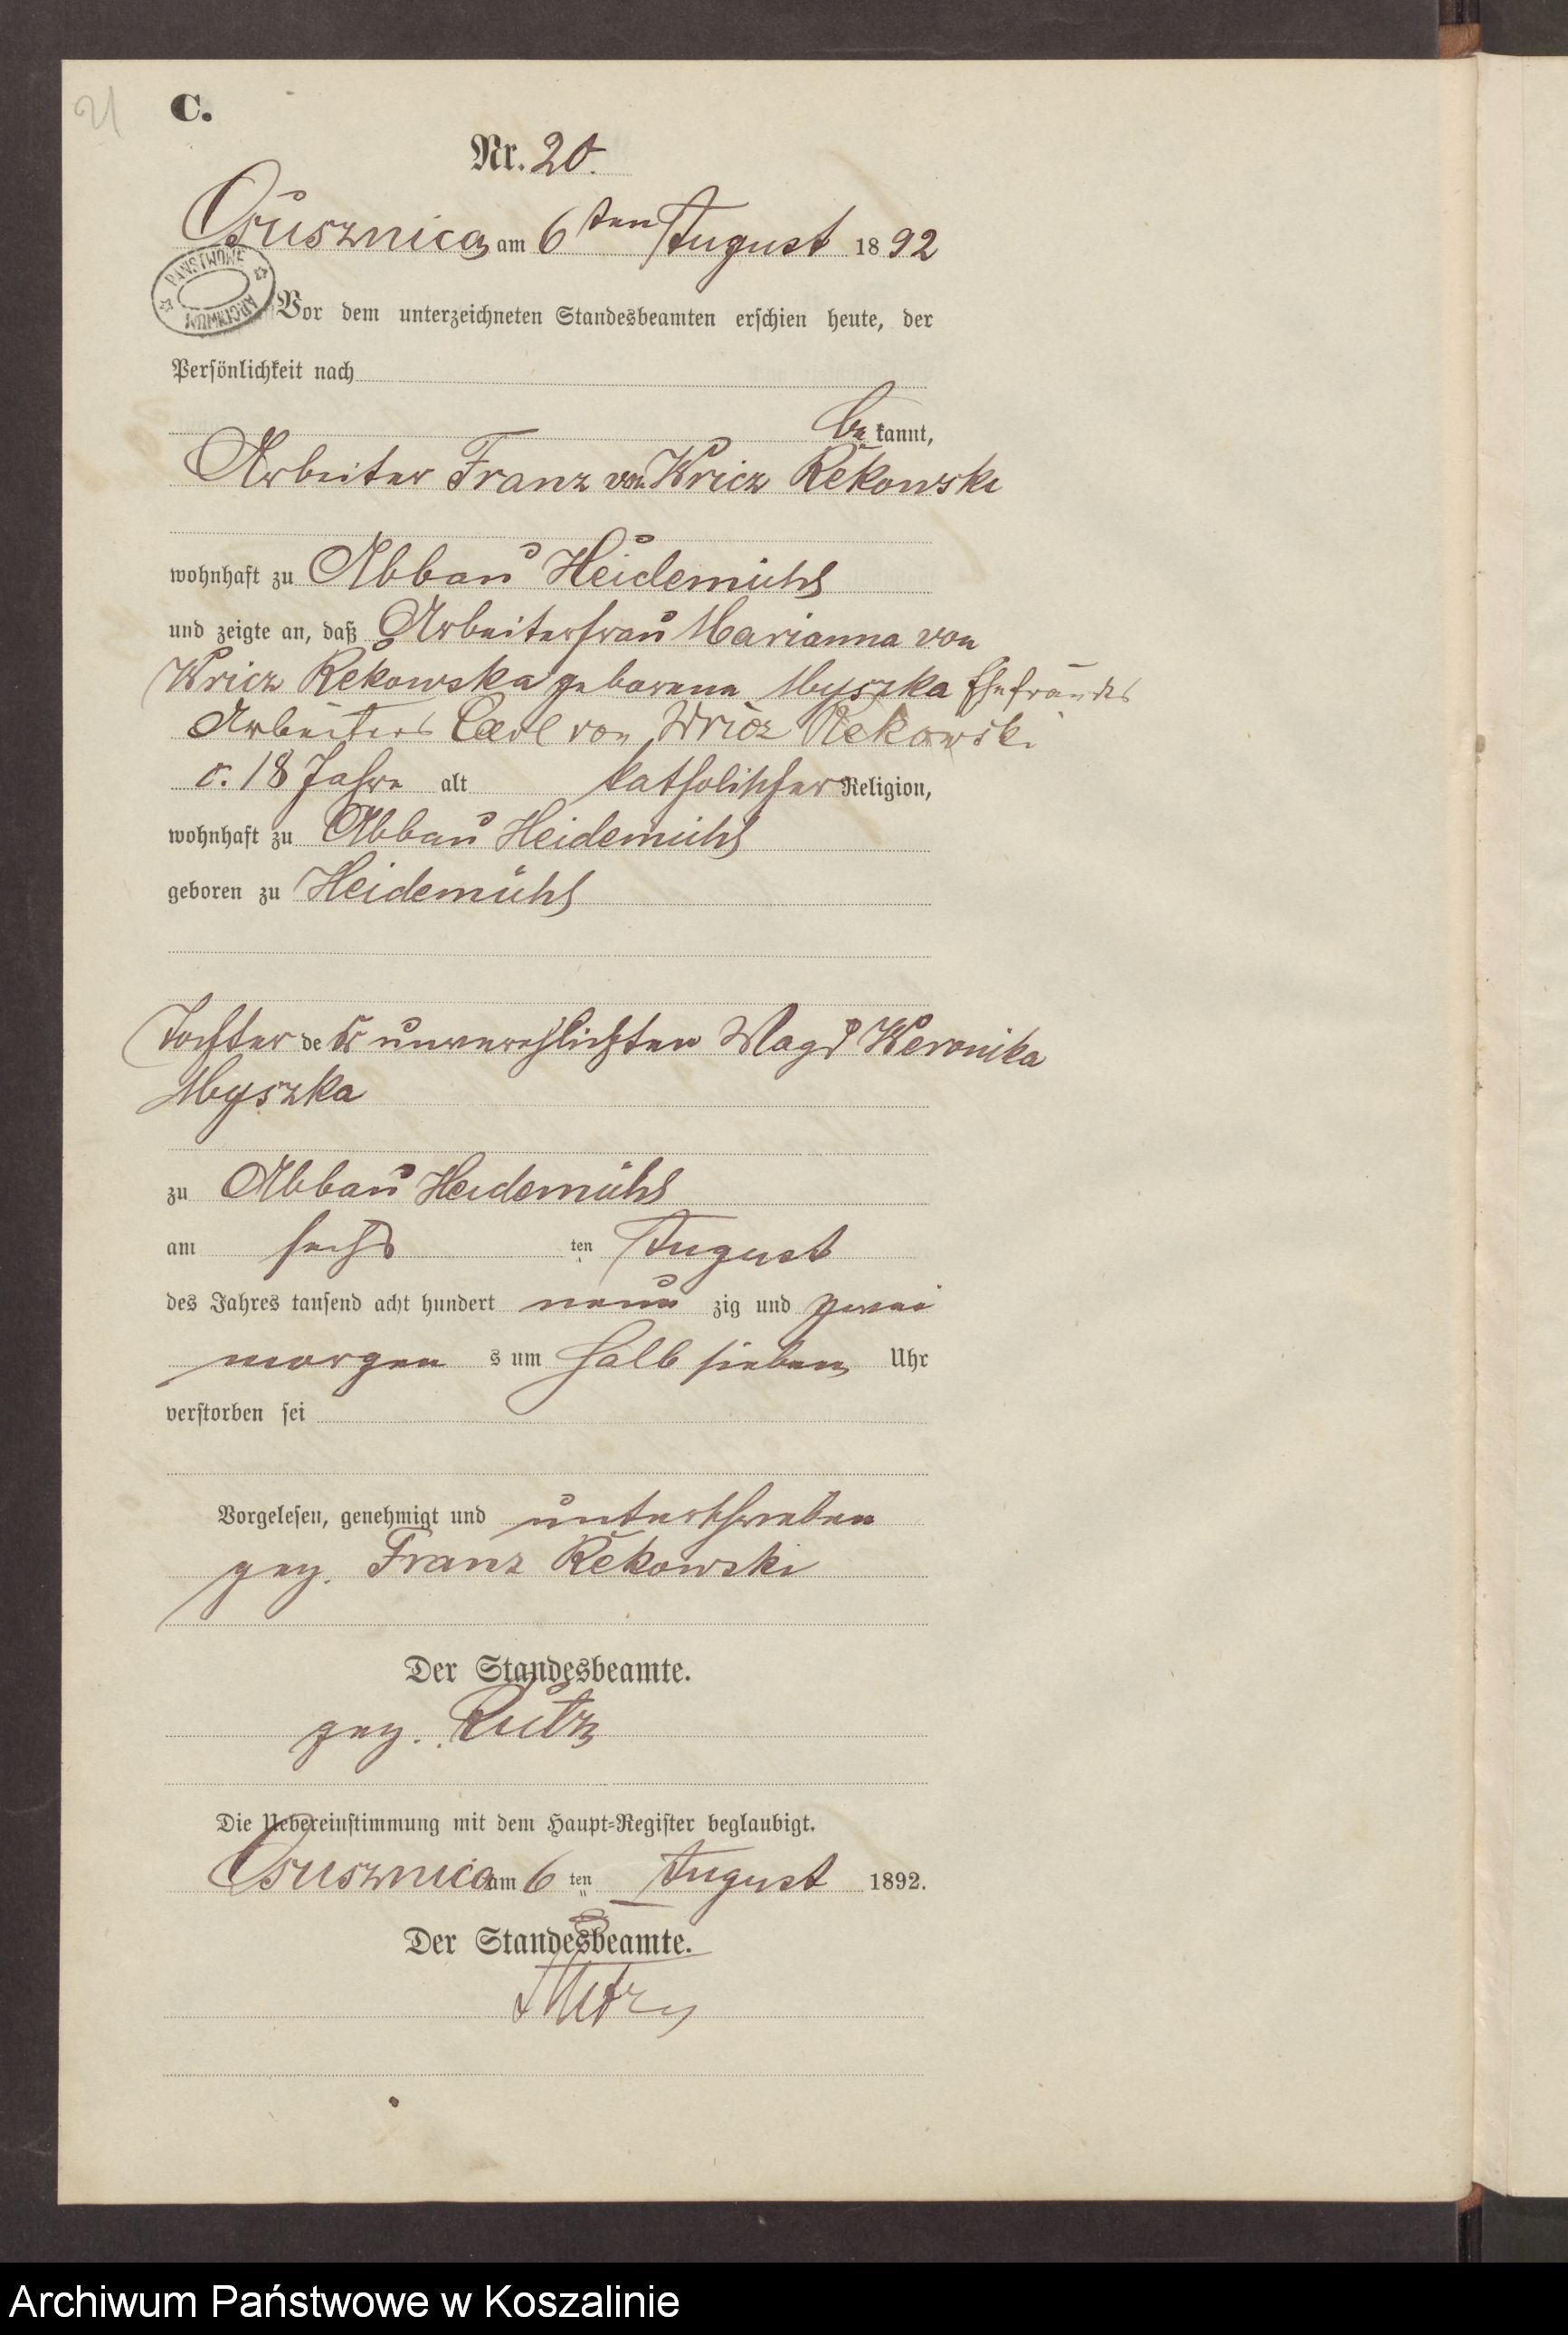 21
C.
Nr. 20.
Ossusznica am 6ten August 1892
PAŃSTWOWE ARCHIWUM
Vor dem unterzeichneten Standesbeamten erschien heute, der
Persönlichkeit nach
be kannt,
Arbeiter Franz von Wricz Rekowski
wohnhaft zu Abbau Heidemühl
und zeigte an, daß Arbeiterfrau Marianna von
Wricz Rekowska geborene Myszka Ehefrau des
Arbeiters Carl von Wricz Rekowski
c. 18 Jahre alt katholischer Religion,
wohnhaft zu Abbau Heidemühl
geboren zu Heidemühl
Tochter der unverehlichten Magd Weronika
Myszka
zu Abbau Heidemühl
am sechs ten August
des Jahres tausend acht hundert neun zig und zwei
morgen s um halb sieben Uhr
verstorben sei
Vorgelesen, genehmigt und unterschrieben
gez. Franz Rekowski
Der Standesbeamte.
gez. Rutz
Die Uebereinstimmung mit dem Haupt-Register beglaubigt.
Ossusznica am 6 ten August 1892.
Der Standesbeamte.
Rutz
Archiwum Państwowe w Koszalinie